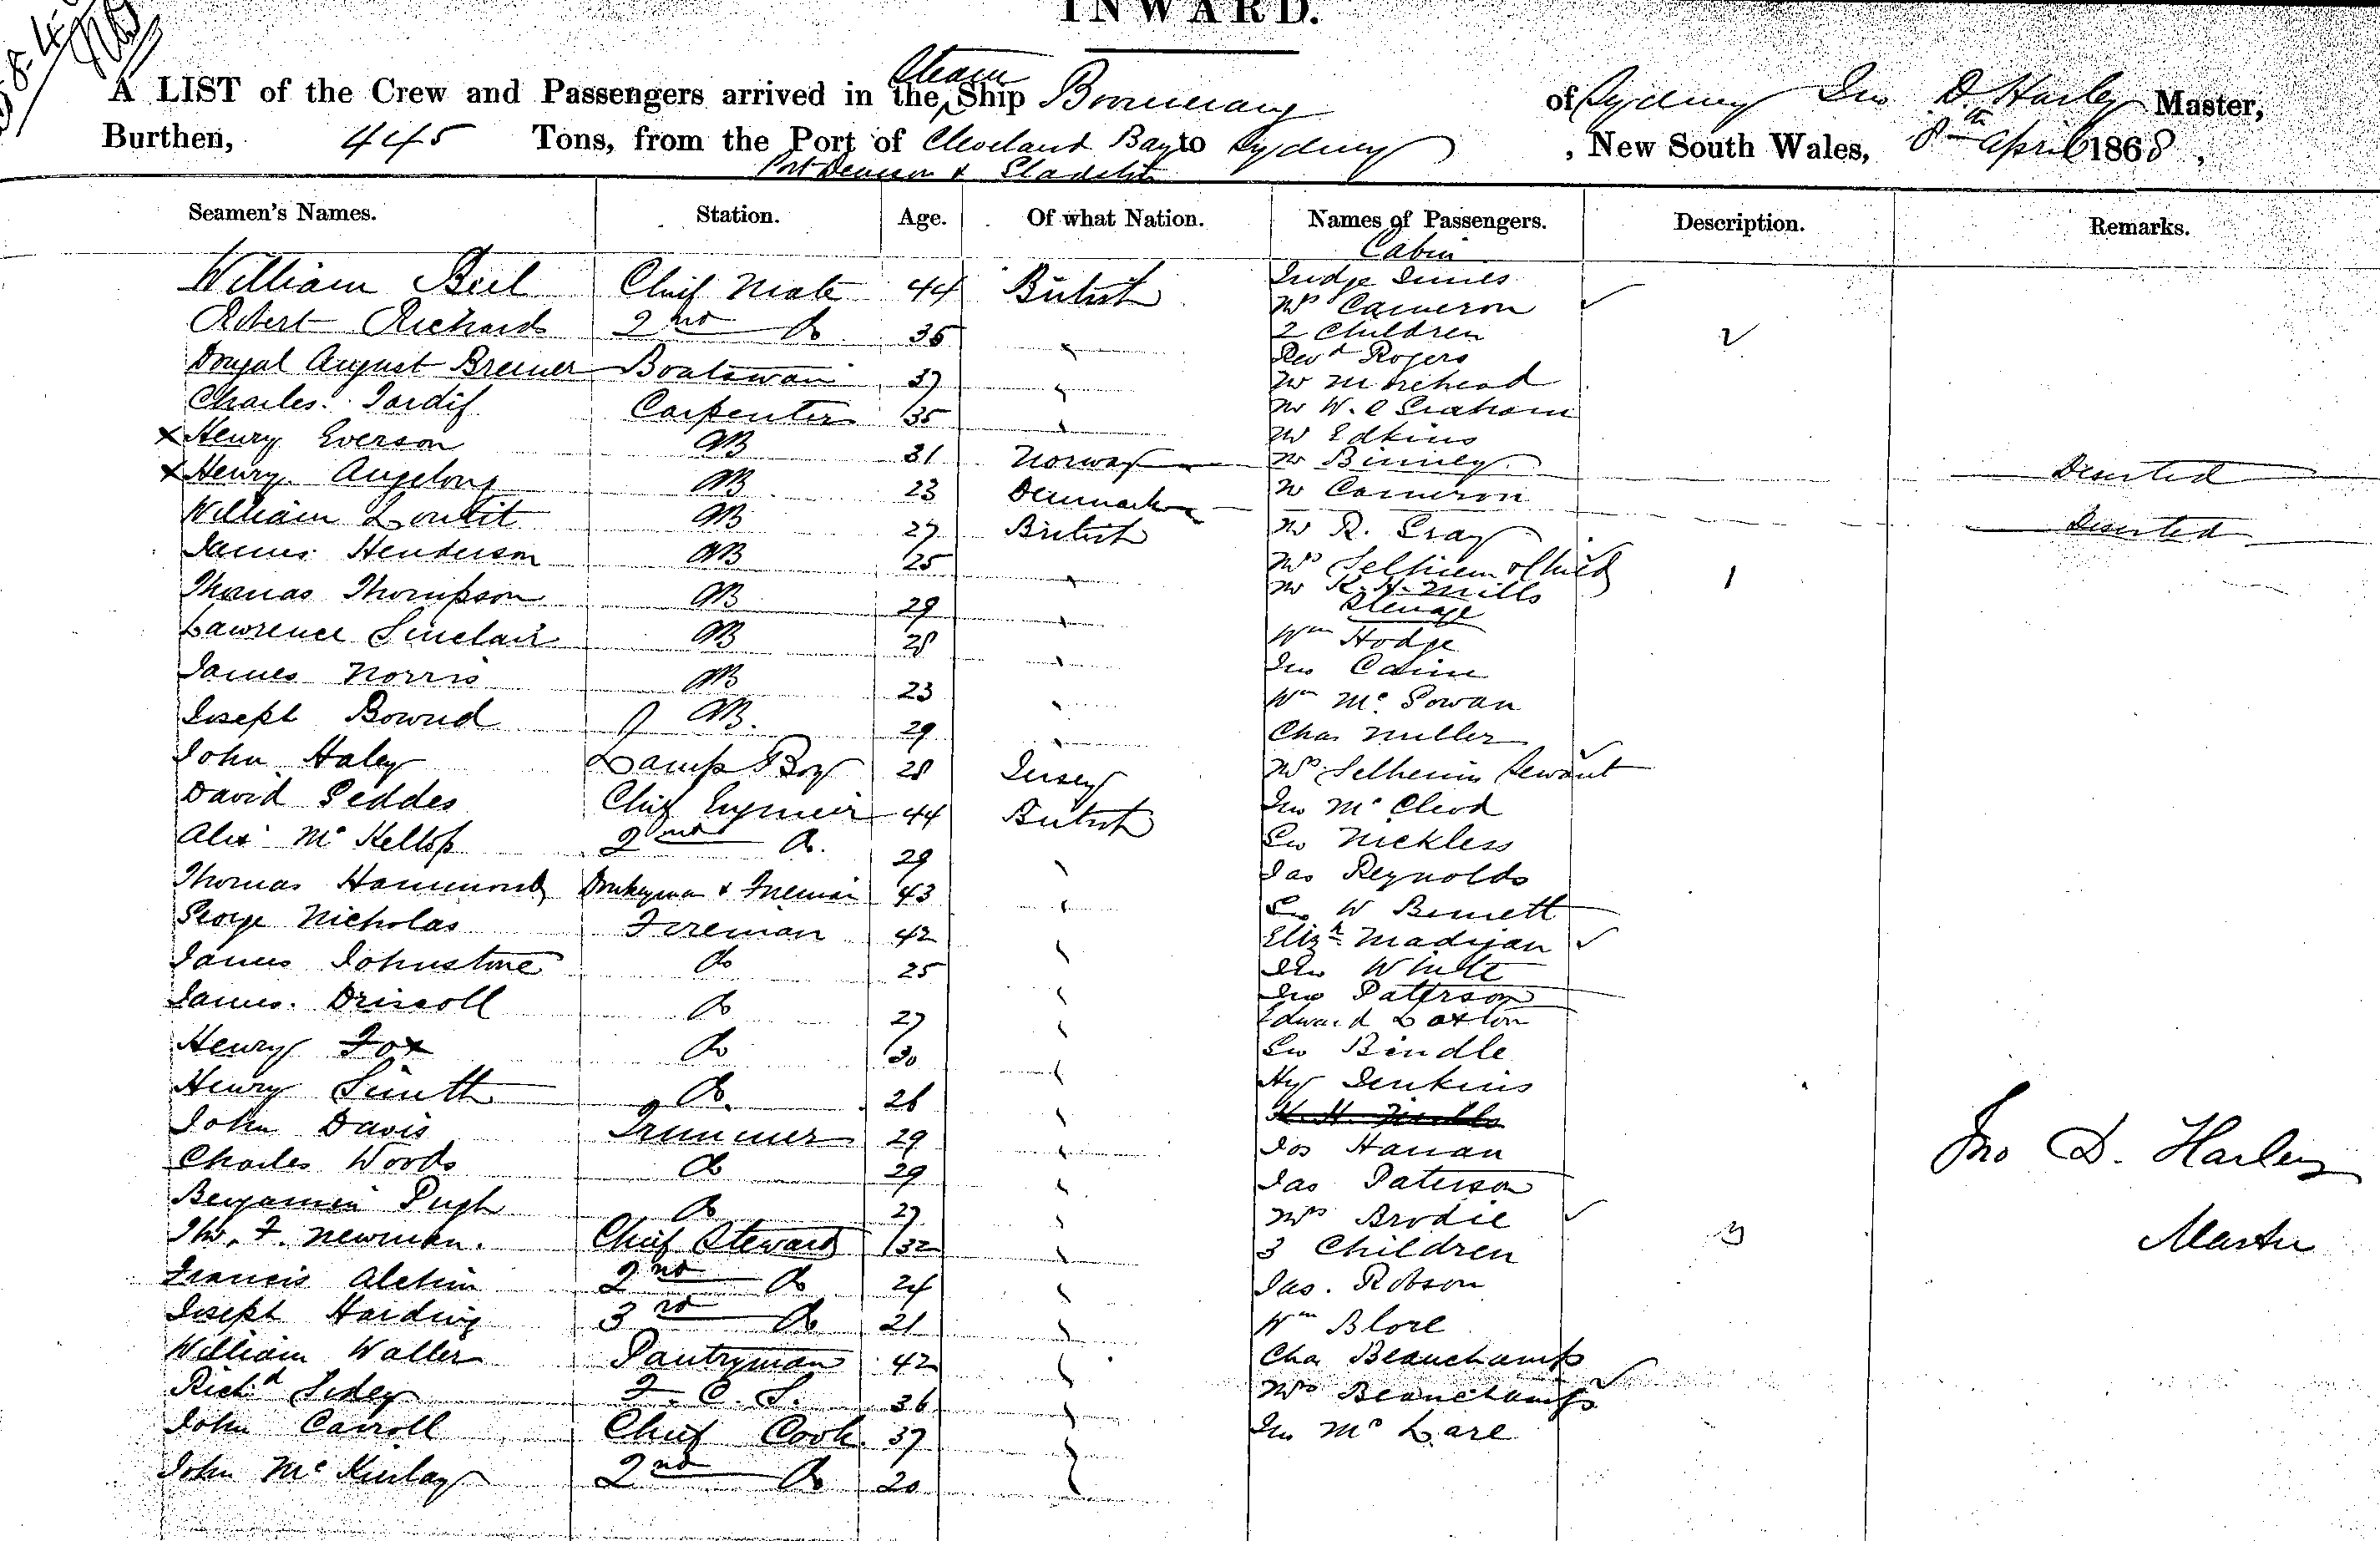 INWARD.
A LIST of the Crew and Passengers arrived in the Steam Ship Boomerang of Sydney Jno D. Harley Master,
Burthen, 445 Tons, from the Port of Cleveland Bay to Sydney, New South Wales, 8th April 1868,
Port Denison &
Seamen's Names. Station. Age. Of what Nation. Names of Passengers. Description. Remarks.
Cabin
William Chief Mate 44 British Judge Innes
Mrs Cameron
Robert Richards 2nd Do 35 " 2 Children 2
Revd Rogers
Dougal August Bremer Boatswain 37 " Mr Morehead
Charles Tardif Carpenter 35 " Mr W. Graham
Mr Edkins
x Henry Everson AB 31 Norway Mr Binney Deserted
x Henry Angelong AB 23 Denmark Mr Cameron Deserted
William Loutit AB 27 British Mr R. Gray
James Henderson AB 25 " Mrs Selheim & Child 1
Mr K. H. Mills
Steerage
Thomas Thompson AB 29 "
Lawrence Sinclair AB 28 " Wm Hodge
Jno
James Norris AB 23 " Wm McGowan
Joseph Bowrd AB. 29 " Chas Miller
John Haley Lamp Boy 28 Jersey Mrs Selheim Servant
David Geddes Chief Engineer 44 British Jno McCleod
Alex McKellop 2nd Do. 29 " Geo Nickless
Jas Reynolds
Thomas Hammond Donkeyman & Fireman 43 " Geo W Bennett
George Nicholas Fireman 42 " Elizth Madigan
James Johnstone Do 25 " Jno White
James Driscoll Do 27 " Jno Paterson
Edward Laxton
Henry Fox Do 30 " Geo Bindle
Henry Smith Do. 26 " Hy Jenkins
K. H. Mills
John Davis Trimmer 29 " Jos Hanan
Charles Woods Do 29 " Jas Paterson
Benjamin Pugh Do 27 " Mrs Brodie
Thos. F. Newman. Chief Steward 32 " 3 Children 3
Francis 2nd Do 24 " Jas. Robson
Joseph Harding 3rd Do 21 " Wm Blore
William Waller Pantryman 42 " Chas Beauchamp
Richd Sidey F. C. S. 36 " Mrs Beauchamp
John Carroll Chief Cook 37 " Jno McLare
John McKinlay 2nd Do 20 "
Jno D. Harley
Master